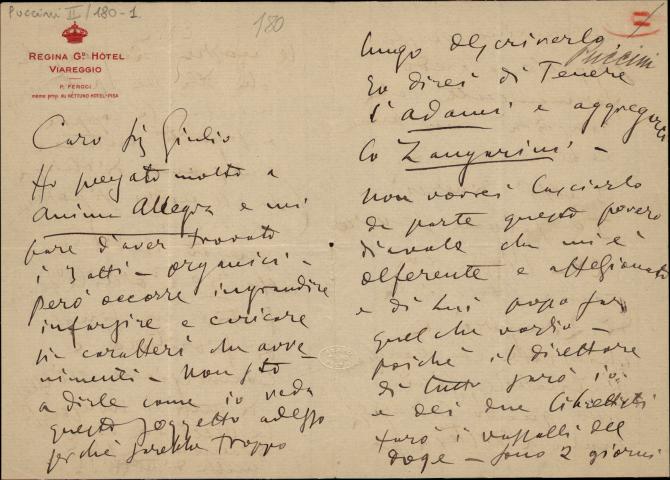 Puccini II/180-1
180
REGINA Gd. HÔTEL
VIAREGGIO
P. FEROCI
même prop. du NETTUNO HOTEL-PISA
Caro Sig Giulio
Ho pensato molto a
Anima Allegra e mi
pare d'aver trovato
i 3 atti - organici -
però occorre ingrandire
infarzire e caricare
sia caratteri che avve-
nimenti - non sto
a dirle come io veda
questo soggetto adesso
perchè sarebbe troppo
Puccini
lungo descriverlo
Io direi di tenere
l'Adami e aggregarci
lo Zangarini -
non vorrei lasciarlo
da parte questo povero
diavolo che mi è
deferente e affezionato
e di lui posso far
quel che voglio -
poichè il direttore
di tutto sarò io
e dei due librettisti
farò i vassalli del
doge - sono 2 giorni